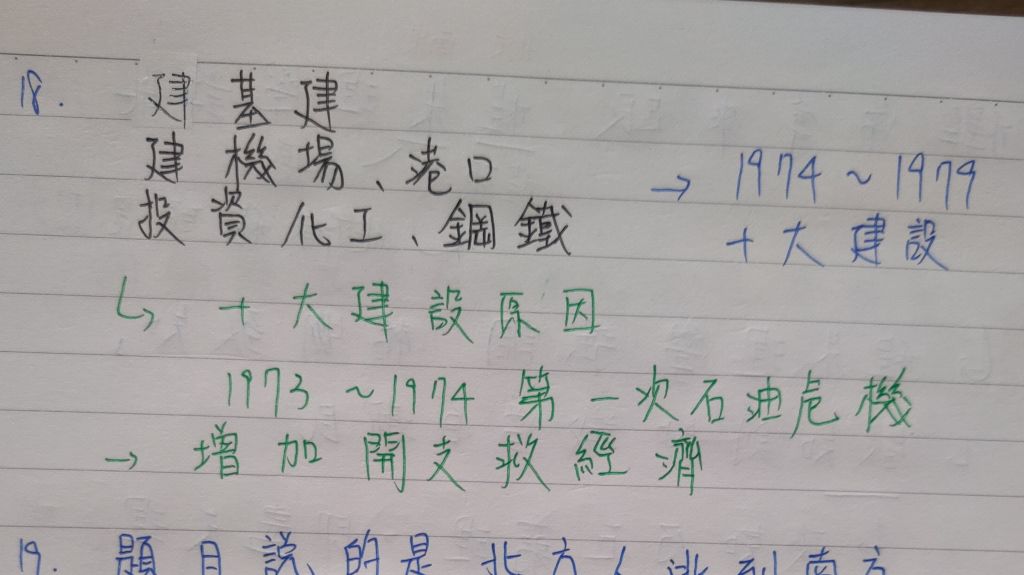 18. 建基建
建機場、港口 → 1974~1979
投資化工、鋼鐵 十大建設
↳ 十大建設原因
1973~1974 第一次石油危機
→ 增加開支救經濟
19. 題目說的是北方人逃到南方